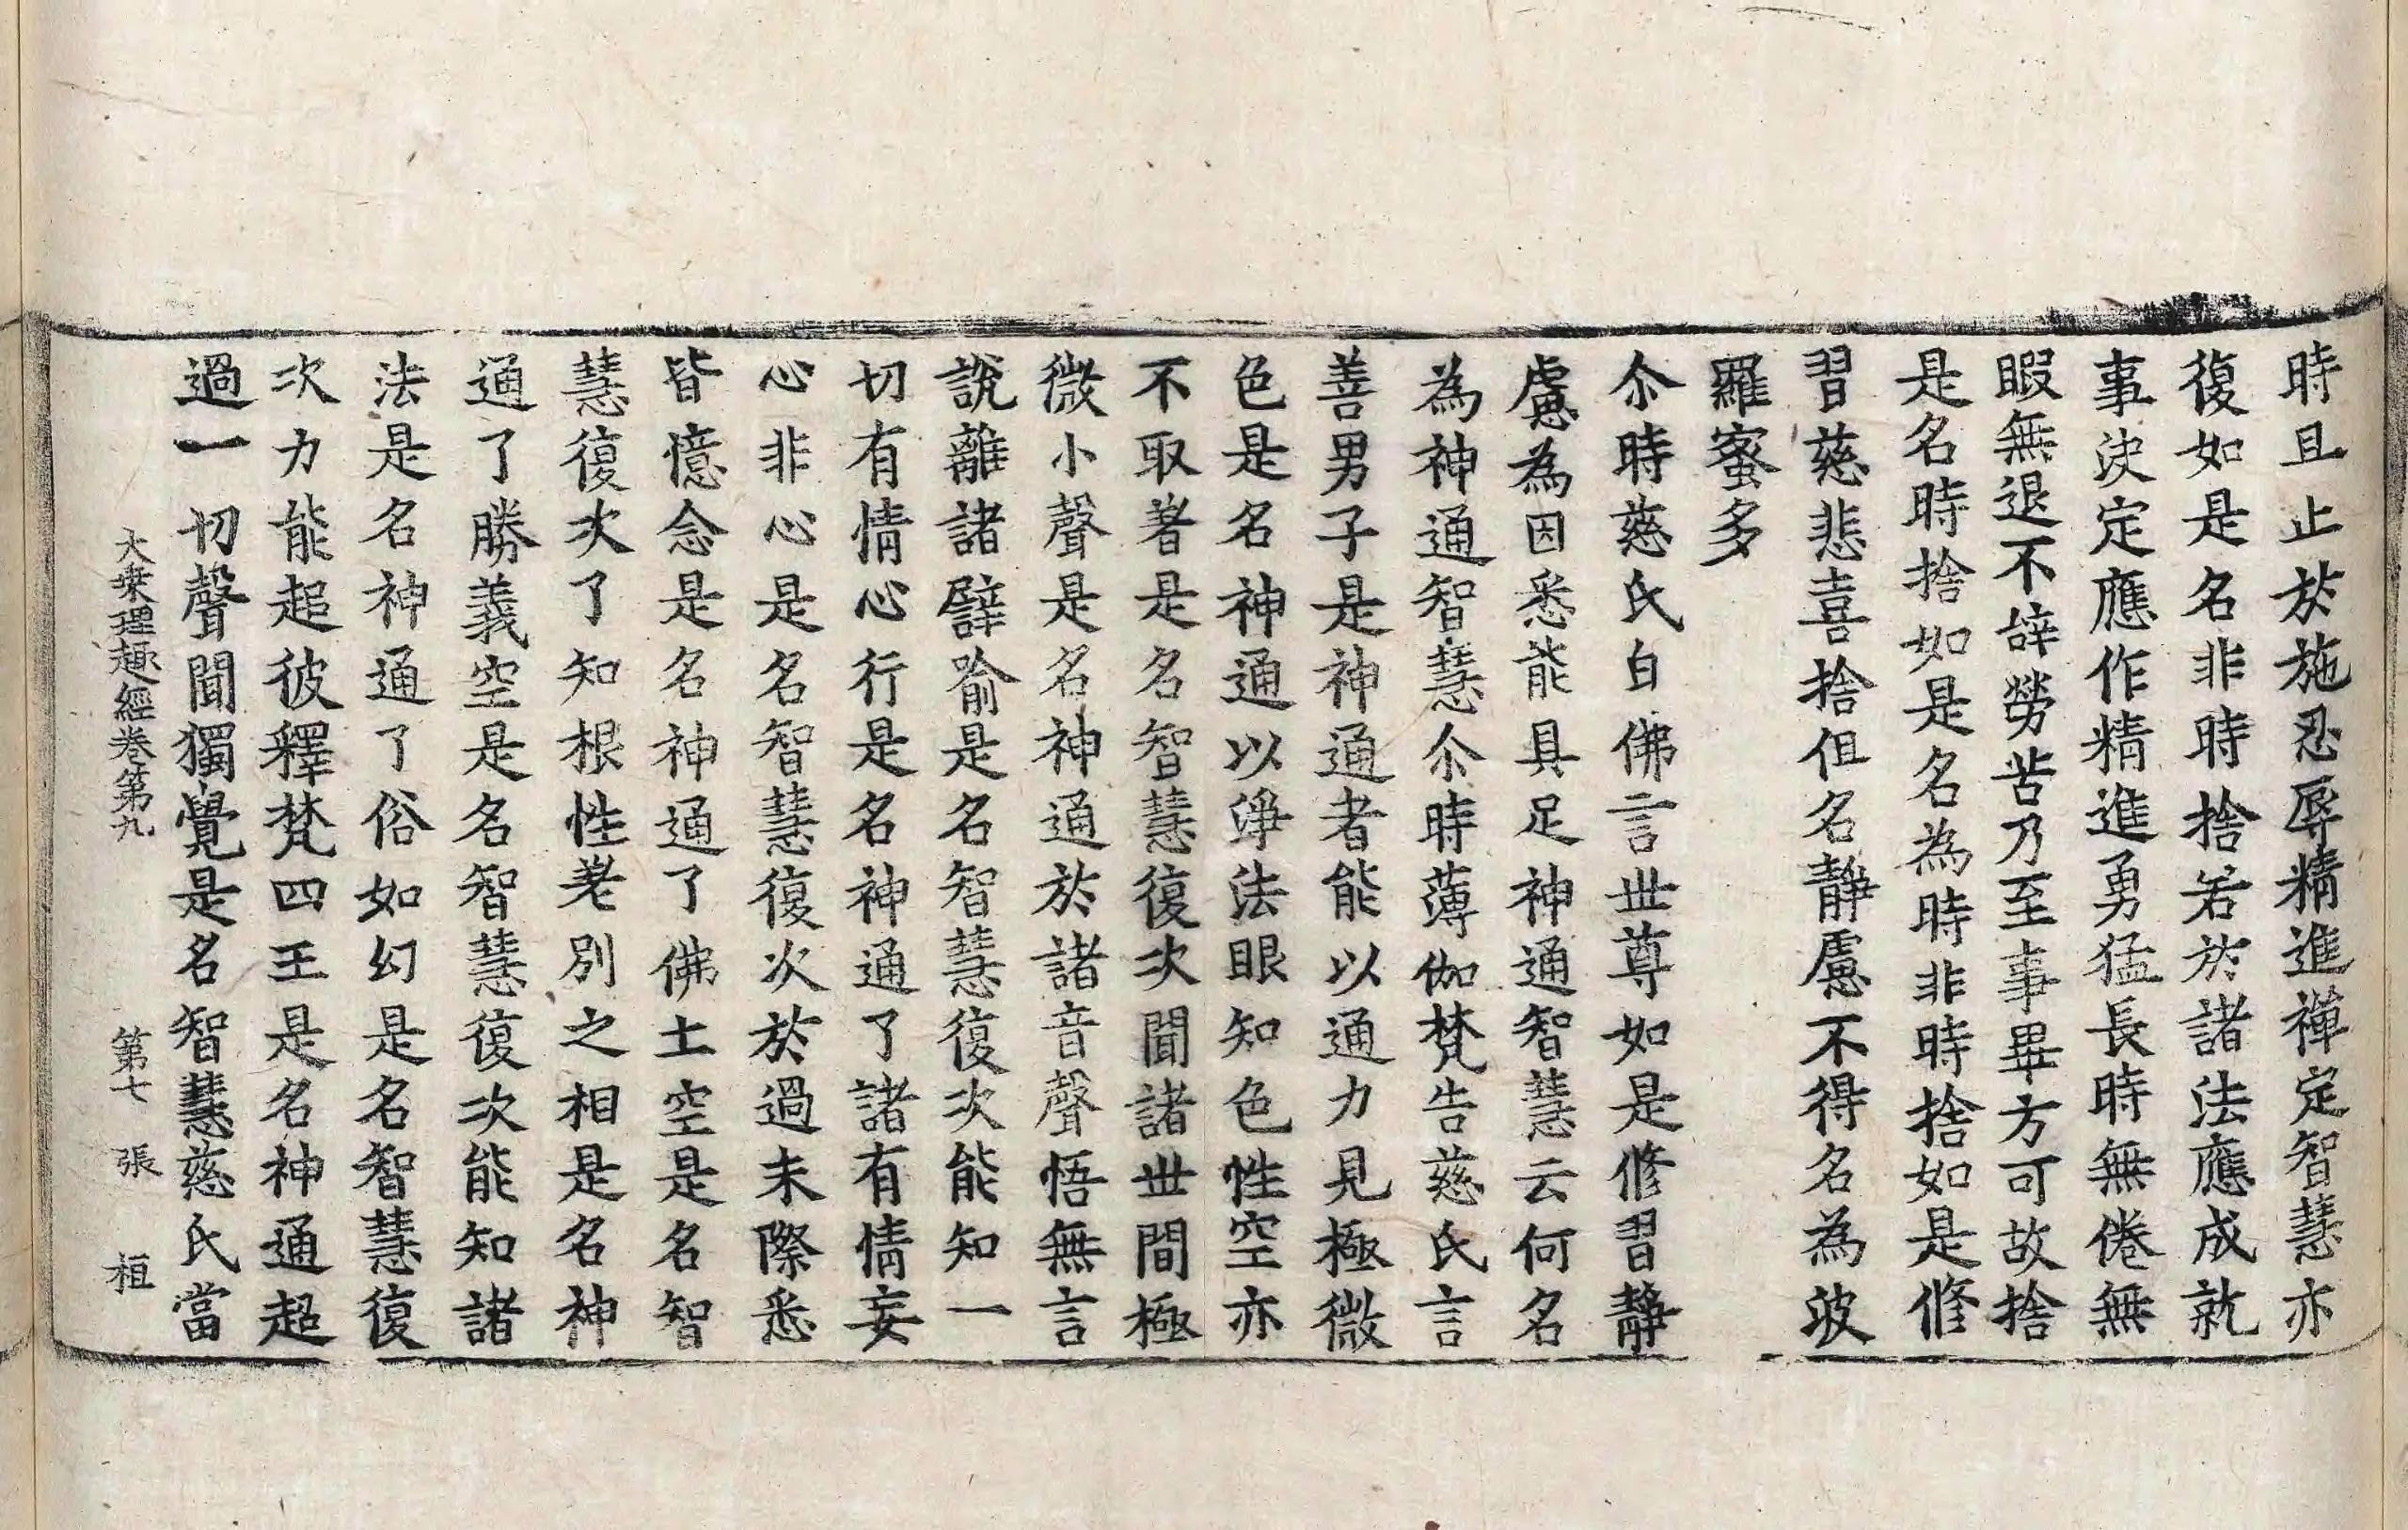 時且止於施忍辱精進禪定智慧亦
復如是名非時捨若於諸法應成就
事決定應作精進勇猛長時無倦無
暇無退不辝勞苦乃至事畢方可故捨
是名時捨如是名為時非時捨如是修
習慈悲喜捨但名靜慮不得名為波
羅蜜多
尒時慈氏白佛言世尊如是修習靜
慮為因悉能具足神通智慧云何名
為神通智慧尒時薄伽梵告慈氏言
善男子是神通者能以通力見極微
色是名神通以淨法眼知色性空亦
不取著是名智慧復次聞諸世間極
微小聲是名神通於諸音聲悟無言
說離諸譬喻是名智慧復次能知一
切有情心行是名神通了諸有情妄
心非心是名智慧復次於過未際悉
皆憶念是名神通了佛土空是名智
慧復次了知根性差別之相是名神
通了勝義空是名智慧復次能知諸
法是名神通了俗如幻是名智慧復
次力能超彼釋梵四王是名神通超
過一切聲聞獨覺是名智慧慈氏當
大乗理趣經卷第九 第七 張 桓